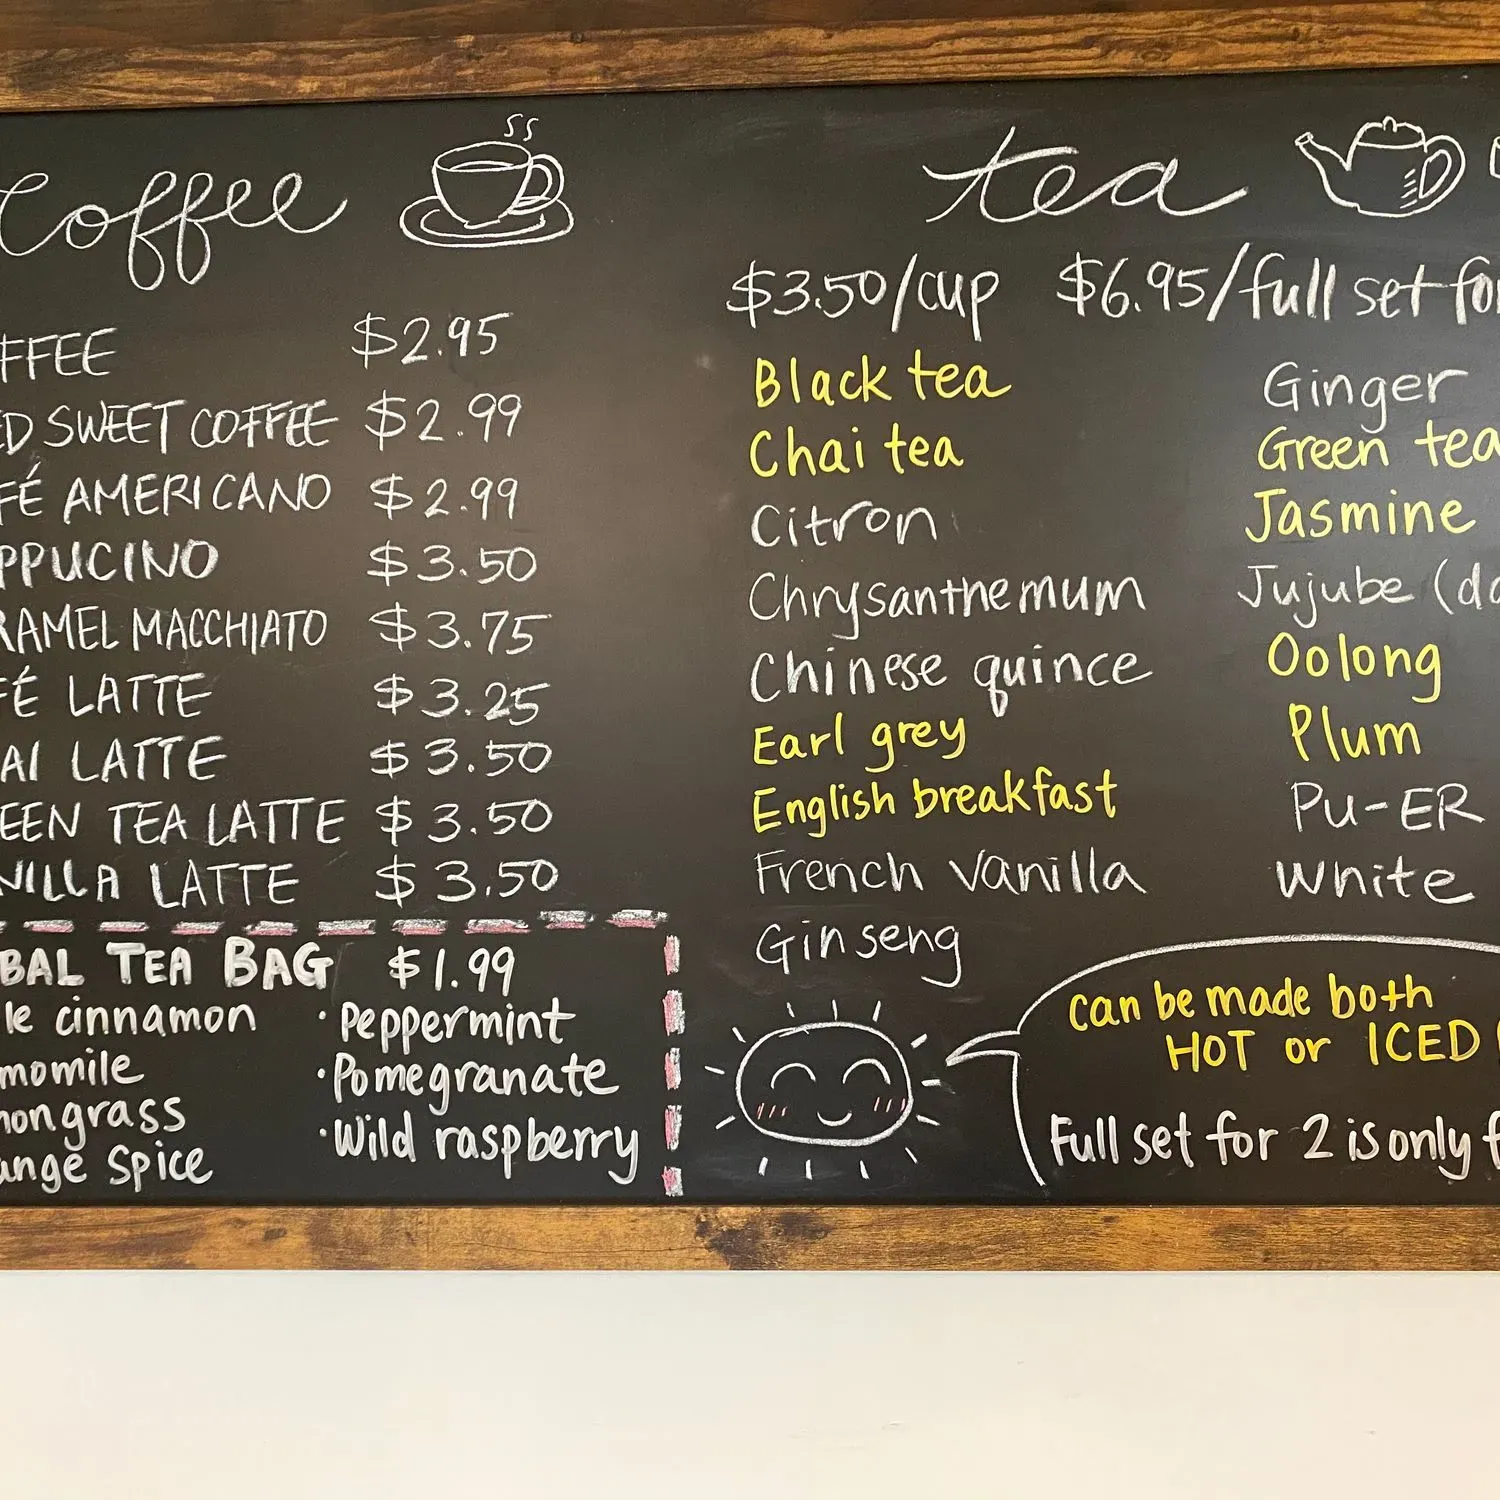 Coffee
FFEE $2.95
ED SWEET COFFEE $2.99
FÉ AMERICANO $2.99
PPUCINO $3.50
RAMEL MACCHIATO $3.75
FÉ LATTE $3.25
AI LATTE $3.50
EEN TEA LATTE $3.50
NILLA LATTE $3.50
BAL TEA BAG $1.99
le cinnamon
momile
mongrass
ange spice
· Peppermint
· Pomegranate
· Wild raspberry
tea
$3.50/cup $6.95/full set for
Black tea
Chai tea
Citron
Chrysanthemum
Chinese quince
Earl grey
English breakfast
French vanilla
Ginseng
Ginger
Green tea
Jasmine
Jujube (da
Oolong
Plum
PU-ER
White
can be made both
HOT or ICED
Full set for 2 is only f